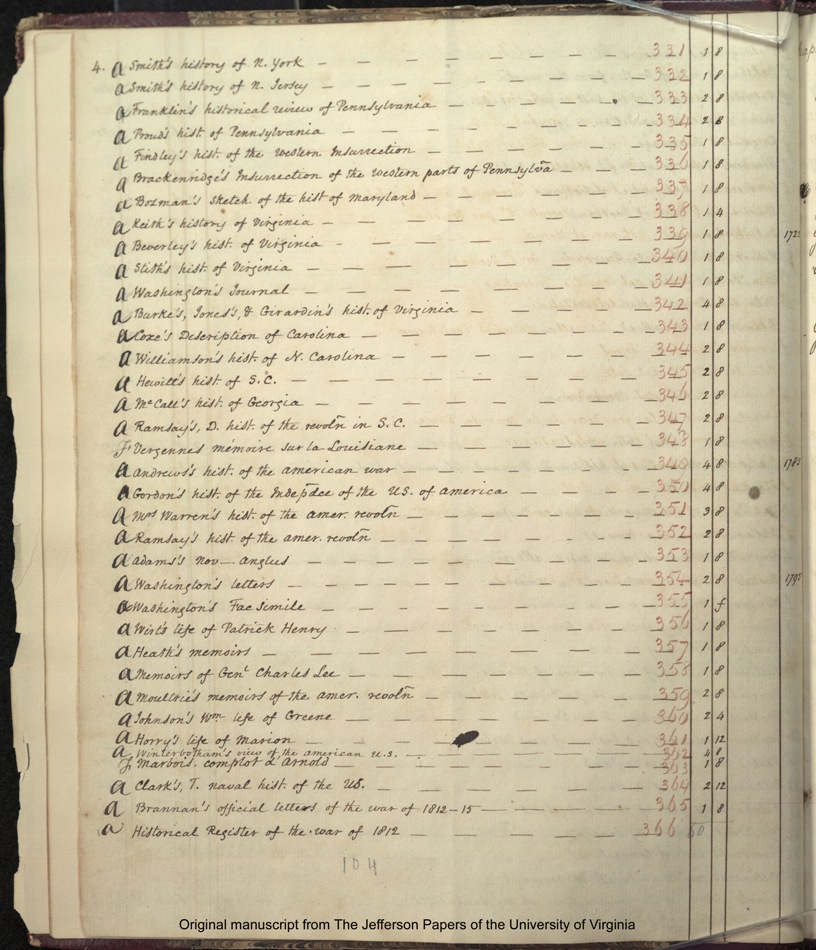 4. a Smith's history of N. York — — — — — — — — 331 1 8
a Smith's history of N. Jersey — — — — — — — — 332 1 8
a Franklin's historical review of Pennsylvania — — — — — 333 2 8
a Proud's hist. of Pennsylvania — — — — — — — — 334 2 8
a Findley's hist. of the Western Insurrection — — — — — 335 1 8
a Brackenridge's Insurrection of the western parts of Pennsylva — — 336 1 8
a Bozman's sketch of the hist of Maryland — — — — — — 337 1 8
a Keith's history of Virginia — — — — — — — — 338 1 4
a Beverley's hist. of Virginia — — — — — — — — 339 1 8
a Stith's hist. of Virginia — — — — — — — — 340 1 8
a Washington's Journal — — — — — — — — 341 1 8
a Burke's, Jones's, & Girardin's hist. of Virginia — — — — — 342 4 8
a Coxe's Description of Carolina — — — — — — — 343 1 8
a Williamson's hist. of N. Carolina — — — — — — — 344 2 8
a Hewitt's hist of S.C. — — — — — — — — 345 2 8
a McCall's hist. of Georgia — — — — — — — — 346 2 8
a Ramsay's, D. hist. of the revoln in S.C. — — — — — — 347 2 8
F Vergennes mémoire sur la Louisiane — — — — — — 348 1 8
a Andrews's hist. of the american war — — — — — — 349 4 8
a Gordon's hist. of the Indepdce of the U.S. of america — — — — 350 4 8
a Mrs Warren's hist. of the amer. revoln — — — — — — 351 3 8
a Ramsay's hist of the amer. revoln — — — — — — — 352 2 8
a Adams's Nov—anglus — — — — — — — — 353 1 8
a Washington's letters — — — — — — — — 354 2 8
a Washington's Fac simile — — — — — — — — 355 1 f
a Wirt's life of Patrick Henry — — — — — — — 356 1 8
a Heath's memoirs — — — — — — — — 357 1 8
a Memoirs of Genl Charles Lee — — — — — — — 358 1 8
a Moultrie's memoirs of the amer. revoln — — — — — — 359 2 8
a Johnson's Wm life of Greene — — — — — — — 360 2 4
a Horry's life of Marion — — — — — — — 361 1 12
a Winterbotham's view of the american U.S. — — — — — — 362 4 8
F Marbois. complot d'Arnold — — — — — — — 363 1 8
a Clark's, T. naval hist. of the US. — — — — — — — 364 2 12
a Brannan's official letters of the war of 1812–15 — — — — — 365 1 8
a Historical Register of the war of 1812 — — — — — — 366
104
Original manuscript from The Jefferson Papers of the University of Virginia